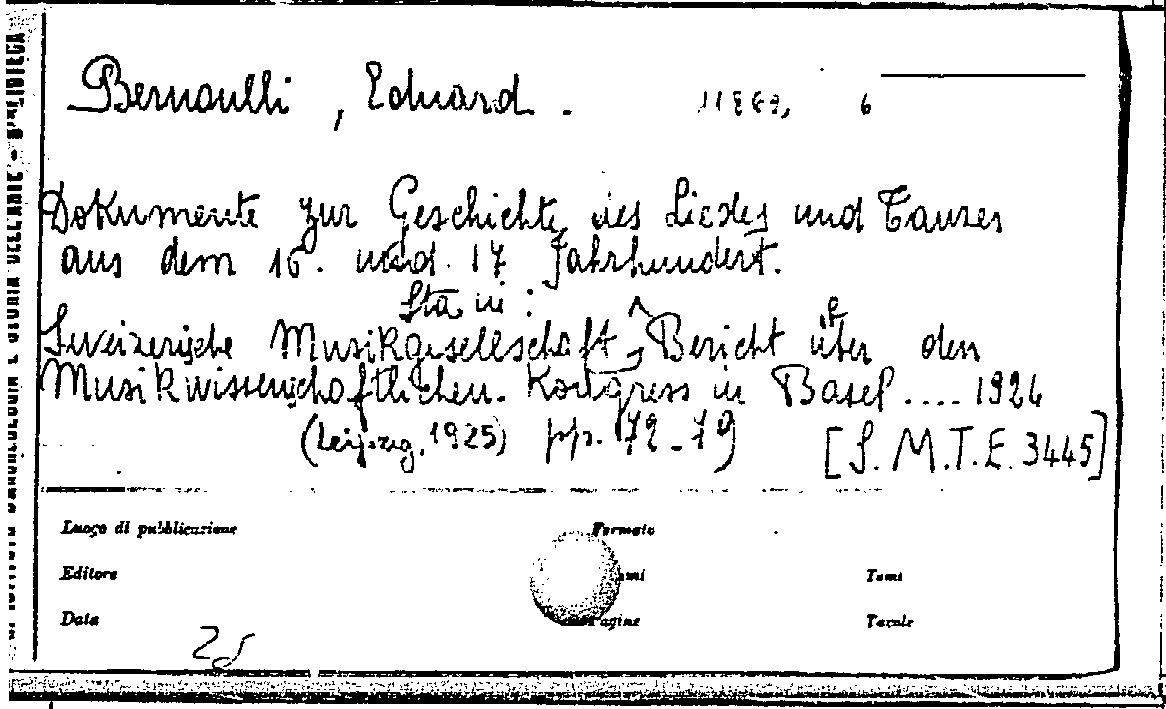 Bernoulli, Eduard.
Dokumente zur Geschichte des Liedes und Tanzes
aus dem 16. und 17 Jahrhundert.
Sta in:
Sweizerische Musikgesellschaft, Bericht über den
Musikwissenschaftlichen Kongress in Basel .... 1924
(Leipzig, 1925) pp. 72-79 [S.M.T.E. 3445]
Luogo di pubblicazione Formato
Editore Tomi
Data Pagine Tavole